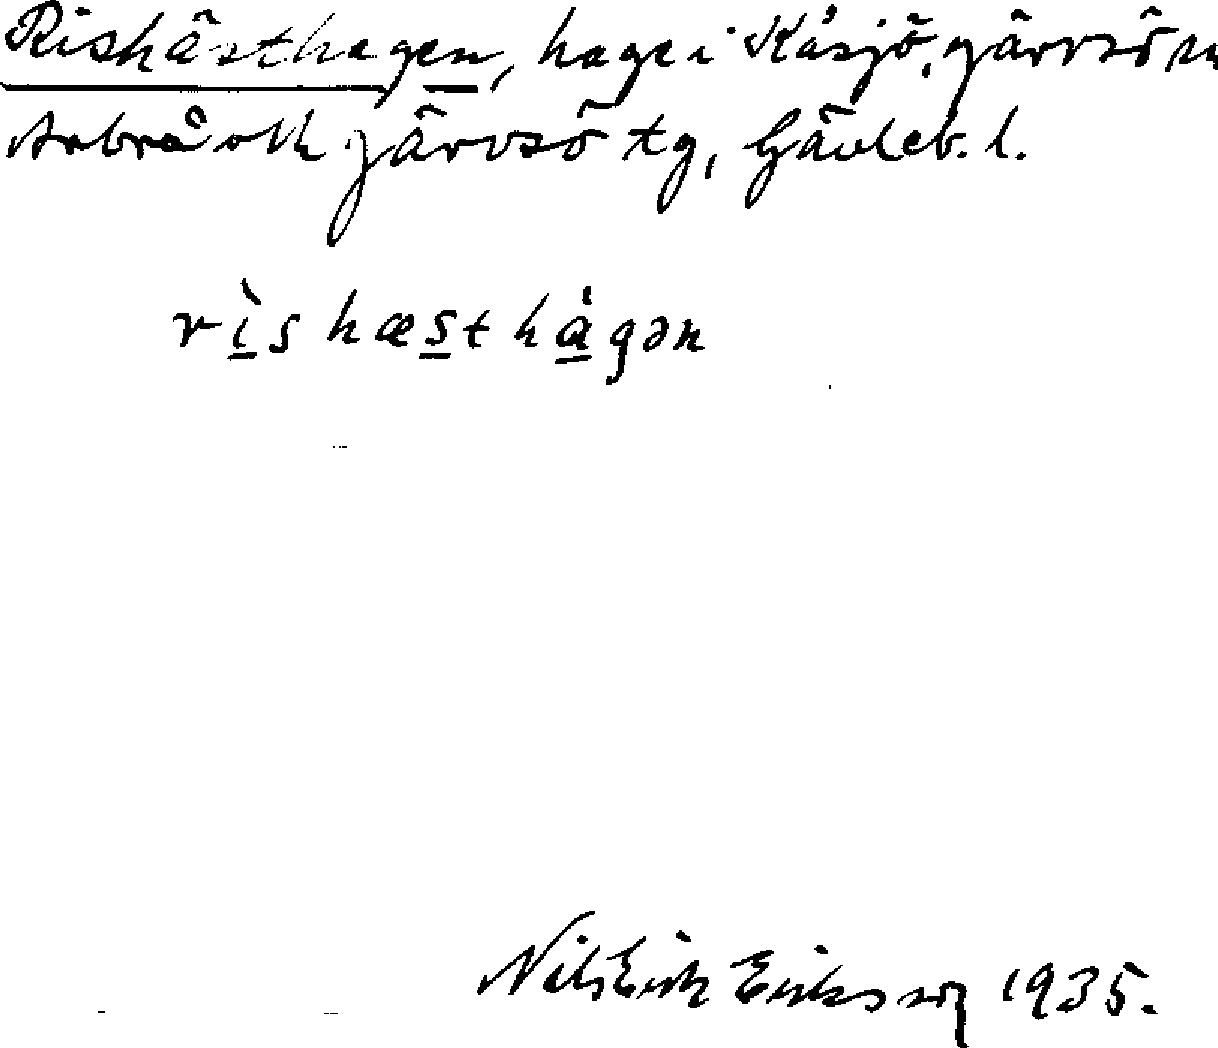 Rishästhagen, hage i Kåsjö, Järvsö sn
Arbrå o Järvsö tg, Gävleb. l.
rìshæsthágən
Nils Erik Eriksson 1935.